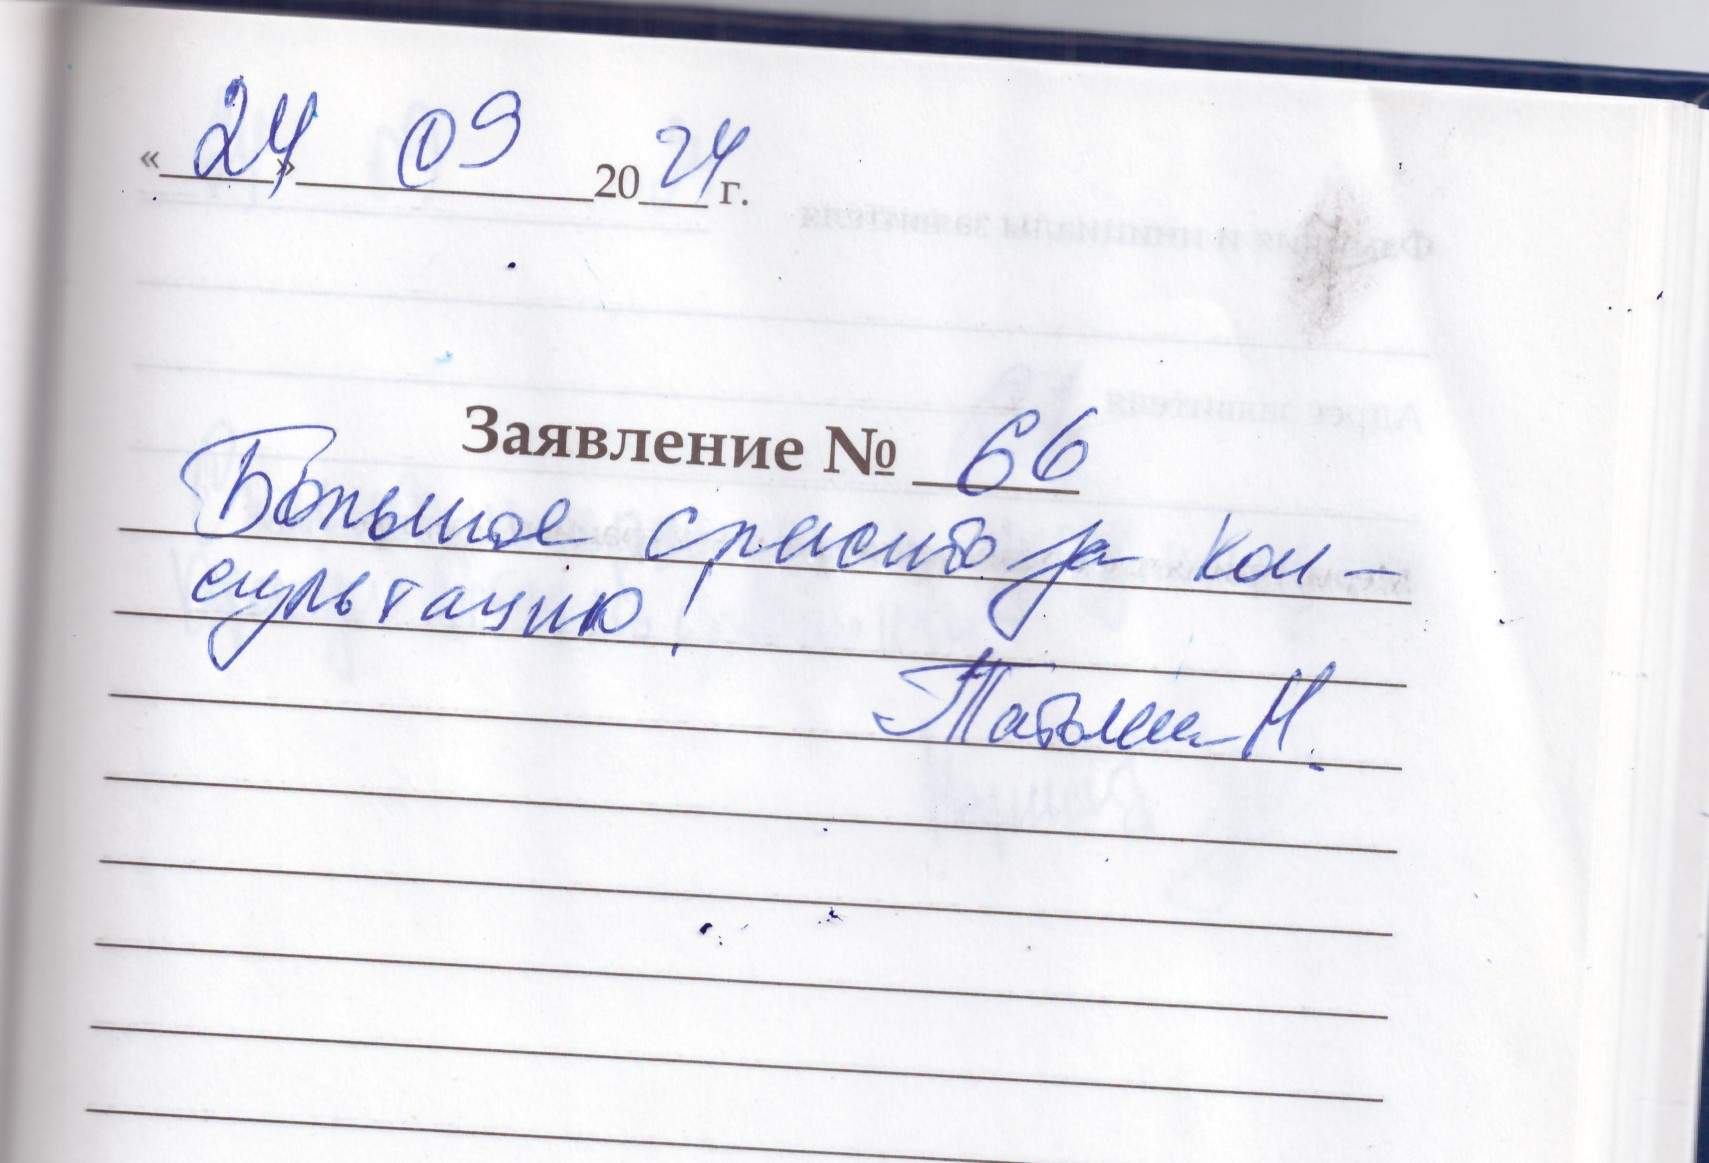 «24» 09 2024 г.
Заявление № 66
Большое спасибо за кон-
сультацию!
Н.